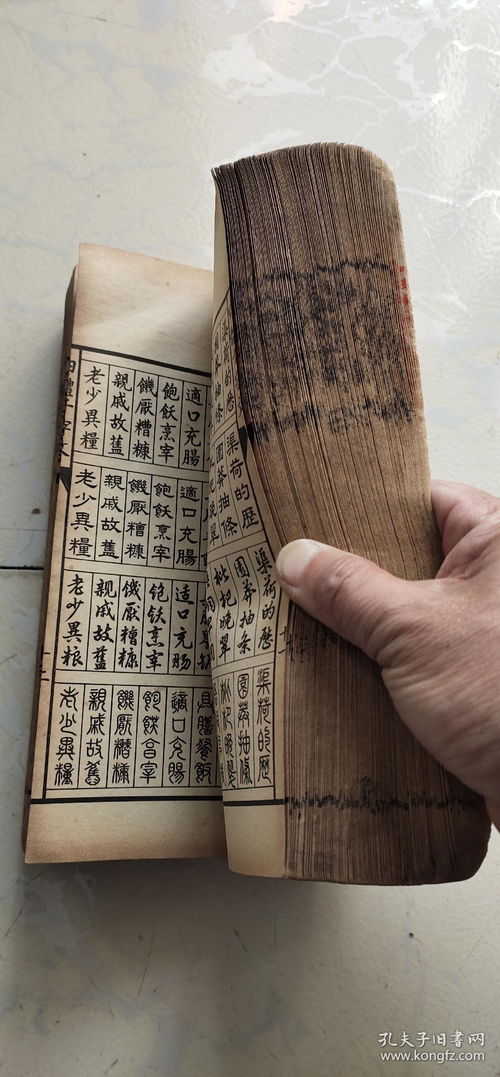 渠荷的歷
園莽抽條
渠荷的歷
園莽抽條
枇杷晚翠
渠荷的歷
園莽抽條
枇杷晚翠
適口充腸
飽飫烹宰
饑厭糟糠
親戚故舊
老少異糧
適口充腸
飽飫烹宰
饑厭糟糠
親戚故舊
老少異糧
適口充腸
飽飫烹宰
饑厭糟糠
親戚故舊
老少異糧
具膳餐飯
適口充腸
飽飫烹宰
饑厭糟糠
親戚故舊
老少異糧
四體千字文
十三
孔夫子旧书网
www.kongfz.com